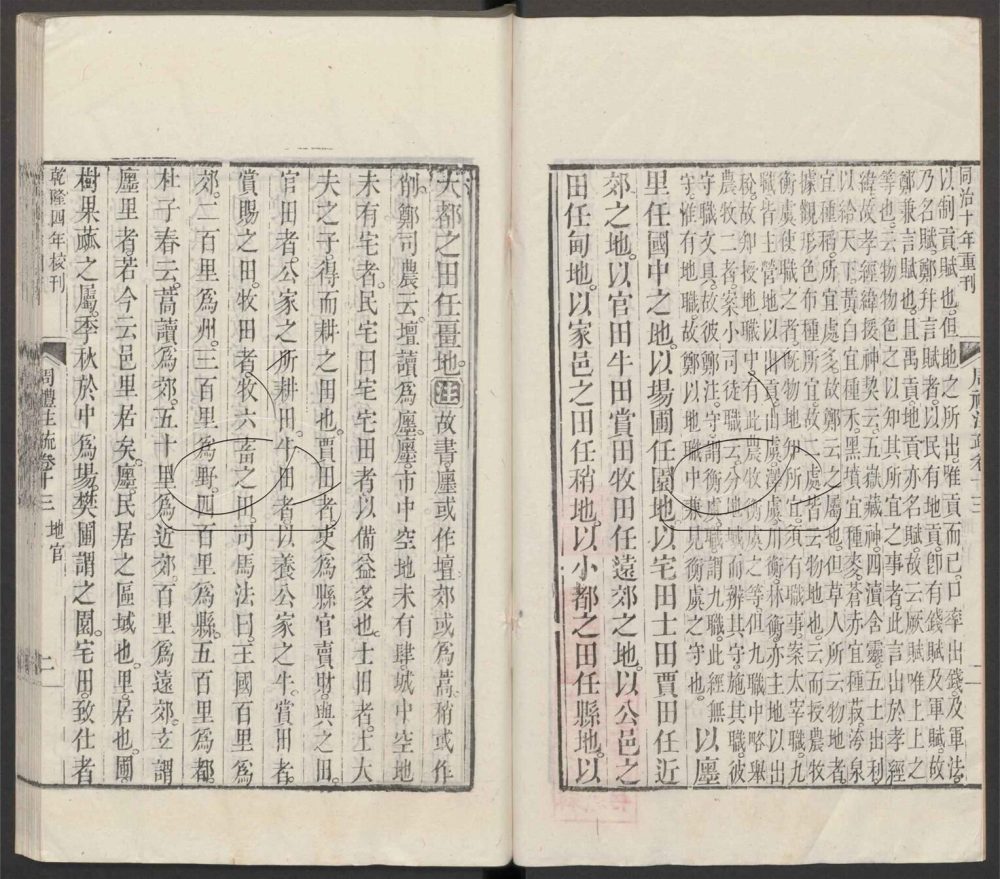 同治十年重刊
以制貢賦也但地之所出唯貢而已口率出錢及軍法
乃名賦鄭并言賦者以民有地貢即有錢賦及軍賦故
鄭兼言賦也且禹貢地貢亦名賦故云厥賦唯上上之
等也云物物色之以知其所宜之事者此言出於孝經
緯故孝經緯援神契云五嶽藏神四瀆含靈五土出利
以給天下黃白宜種禾黑墳宜種麥蒼赤宜種菽洿泉
宜種稻所宜處多故鄭云之屬也但草人所云物地者
據觀形色布種所宜故二處皆云物地也云而授農牧
衡虞使職之者既物地知所宜須有職事案太宰職九
職皆主營地以出貢山虞澤虞川衡林衡亦主地以出
稅故知授地職中有此農牧衡虞之等但九職中略舉
農牧二者案小司徒職云分地域而辨其守施其職彼
守職文具故彼鄭注守謂衡虞職謂九職此經無
守惟有地職故鄭以地職中兼見衡虞之守 以廛
里任國中之地以場圃任園地以宅田士田賈田任近
郊之地以官田牛田賞田牧田任遠郊之地以公邑之
田任甸地以家邑之田任稍地以小都之田任縣地以
大都之田任畺地注故書廛或作壇郊或為蒿稍或作
削鄭司農云壇讀爲廛廛市中空地未有肆城中空地
未有宅者民宅曰宅宅田者以備益多也士田者士大
夫之子得而耕之田也賈田者吏爲縣官賣財與之田
官田者公家之所耕田牛田者以養公家之牛賞田者
賞賜之田牧田者牧六畜之田司馬法曰王國百里爲
郊二百里爲州三百里爲野四百里爲縣五百里爲都
杜子春云蒿讀爲郊五十里爲近郊百里爲遠郊立謂
廛里者若今云邑里居矣廛民居之區域也里居也圃
樹果蓏之屬季秋於中爲場樊圃謂之園宅田致仕者
乾隆四年校刊
周禮注疏卷十三 地官 二